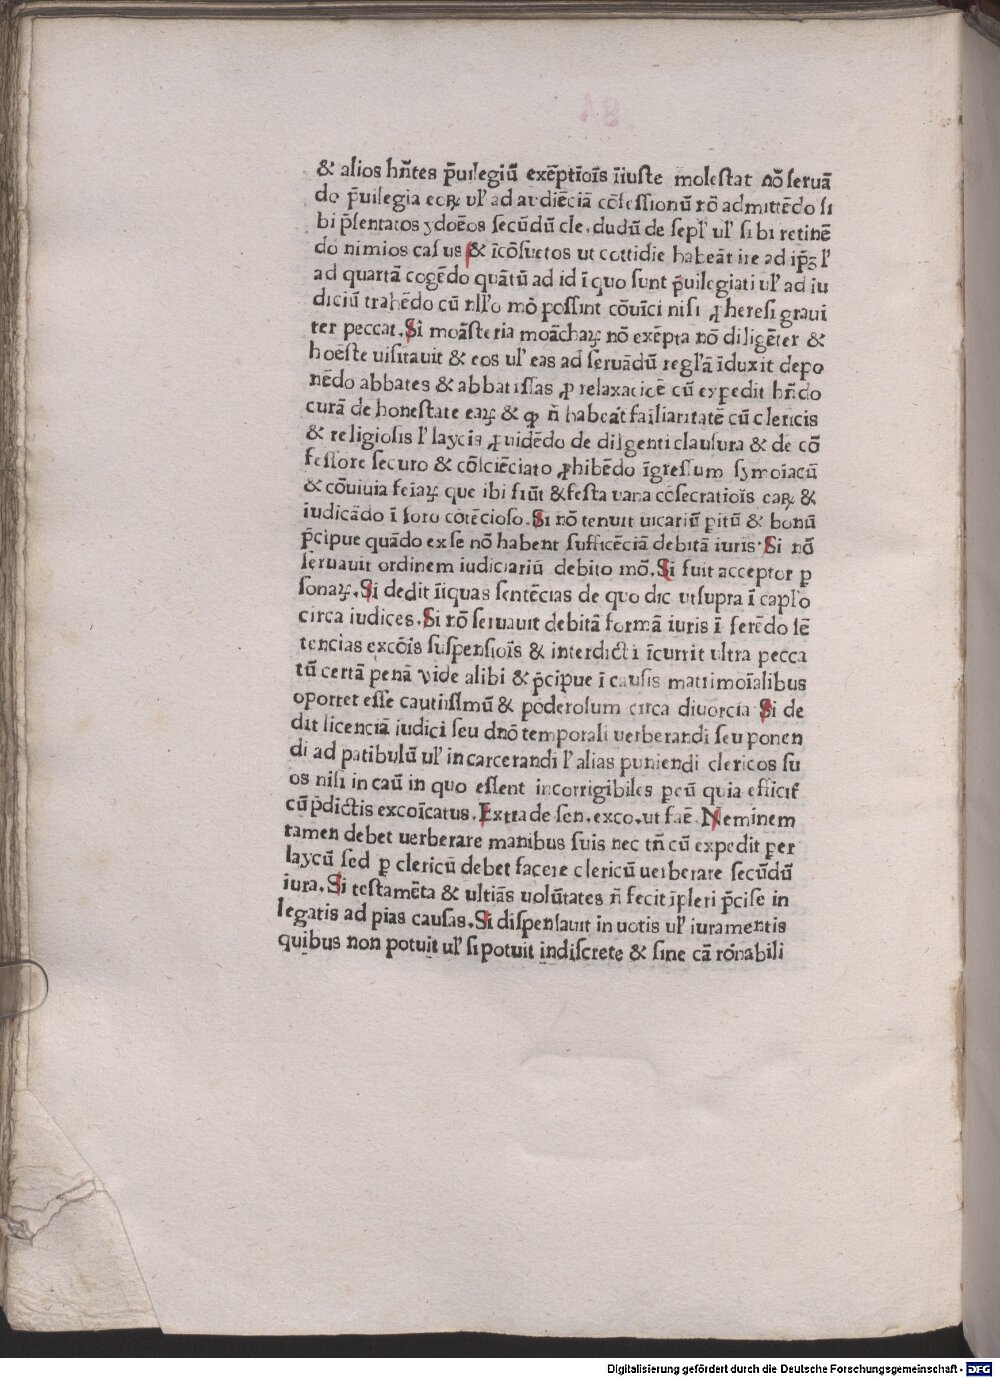 & alios hn̄tes p̄uilegiū exēptiōīs īiuste molestat nō seruā
do p̄uilegia eoꝝ ul' ad audiēciā cōfessionū nō admittēdo si
bi p̄sentatos ydoēos secūdū cle. dudū de sepl' ul' sibi retinē
do nimios casus & īcōsuetos ut cottidie habeāt ire ad ip̄ʒ l'
ad quartā cogēdo quātū ad id ī quo sunt p̄uilegiati ul' ad iu
diciū trahēdo cū nll'o mō possint cōuīci nisi ꝓ heresi graui
ter peccat. Si moāsteria moāchaꝝ nō exēpta nō diligēter &
hoēste uisitauit & eos ul' eas ad seruādū regl'ā īduxit depo
nēdo abbates & abbatissas ꝓ relaxacioē cū expedit hn̄do
curā de honestate eaꝝ & ꝙ n̄ habeāt failiaritatē cū clericis
& religiosis l' laycis ꝓuidēdo de diligenti clausura & de cō
fessore securo & cōsciēciato ꝓhibēdo īgressum symoīacū
& cōuiuia feīaꝝ que ibi fiūt & festa uana cōsecratiōīs eaꝝ &
iudicādo ī foro cōtēcioso. Si nō tenuit uicariū ꝑitū & bonū
p̄cipue quādo ex se nō habent sufficēciā debitā iuris. Si nō
seruauit ordinem iudiciariū debito mō. Si fuit acceptor ꝑ
sonaꝝ. Si dedit īiquas sentēcias de quo dic̄ utsupra ī capl'o
circa iudices. Si nō seruauit debitā formā iuris ī ferēdo sē
tencias excōīs suspensiōīs & interdicti īcurrit ultra pecca
tū certā penā vide alibi & p̄cipue ī causis matrimoīalibus
oportet esse cautissimū & pōderosum circa diuorcia Si de
dit licenciā iudici seu dnō temporali uerberandi seu ponen
di ad patibulū ul' incarcerandi l' alias puniendi clericos su
os nisi in caū in quo essent incorrigibiles pcū quia efficit̄
cū p̄dictis excoīcatus. Extra de sen. exco. ut fāē. Neminem
tamen debet uerberare manibus suis nec tn̄ cū expedit ꝑ er
laycū sed ꝑ clericū debet facere clericū uerberare secūdū
iura. Si testamēta & ultiās uolūtates n̄ fecit īpleri p̄cise in
legatis ad pias causas. Si dispensauit in uotis ul' iuramentis
quibus non potuit ul' si potuit indiscrete & sine cā rōnabili
Digitalisierung gefördert durch die Deutsche Forschungsgemeinschaft - DFG